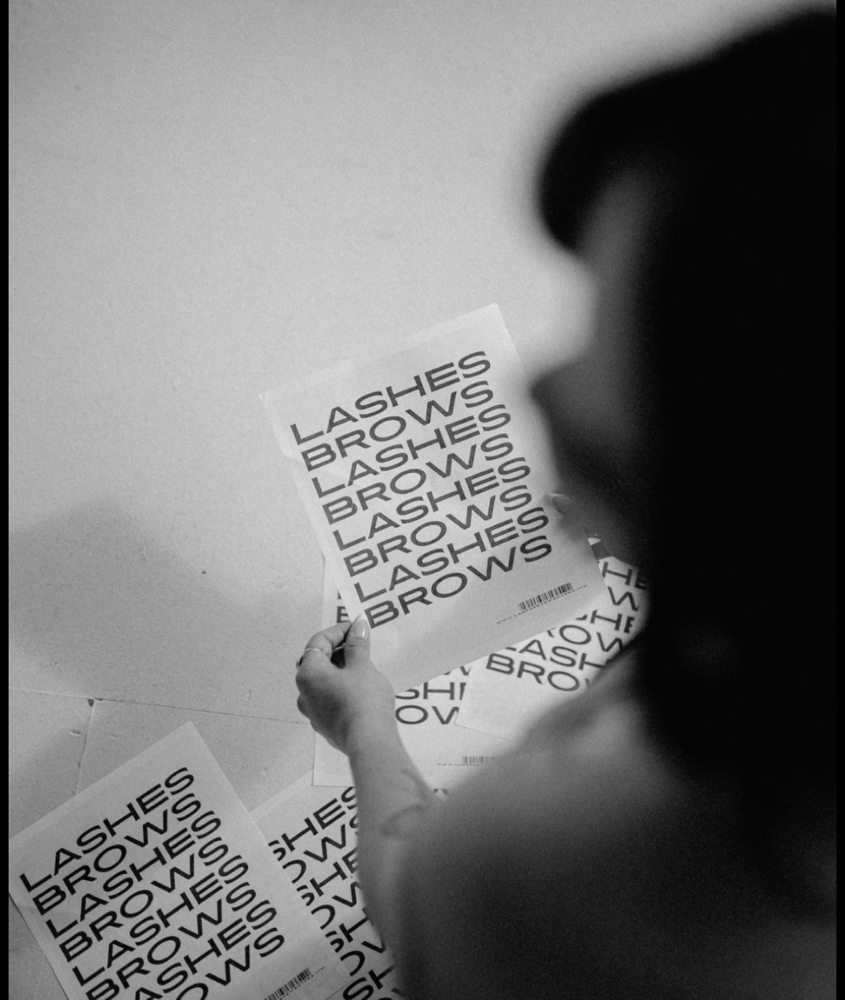 LASHES
BROWS
LASHES
BROWS
LASHES
BROWS
LASHES
BROWS
LASHES
BROWS
LASHES
BROWS
LASHES
BROWS
LASHES
BROWS
LASHES
BROWS